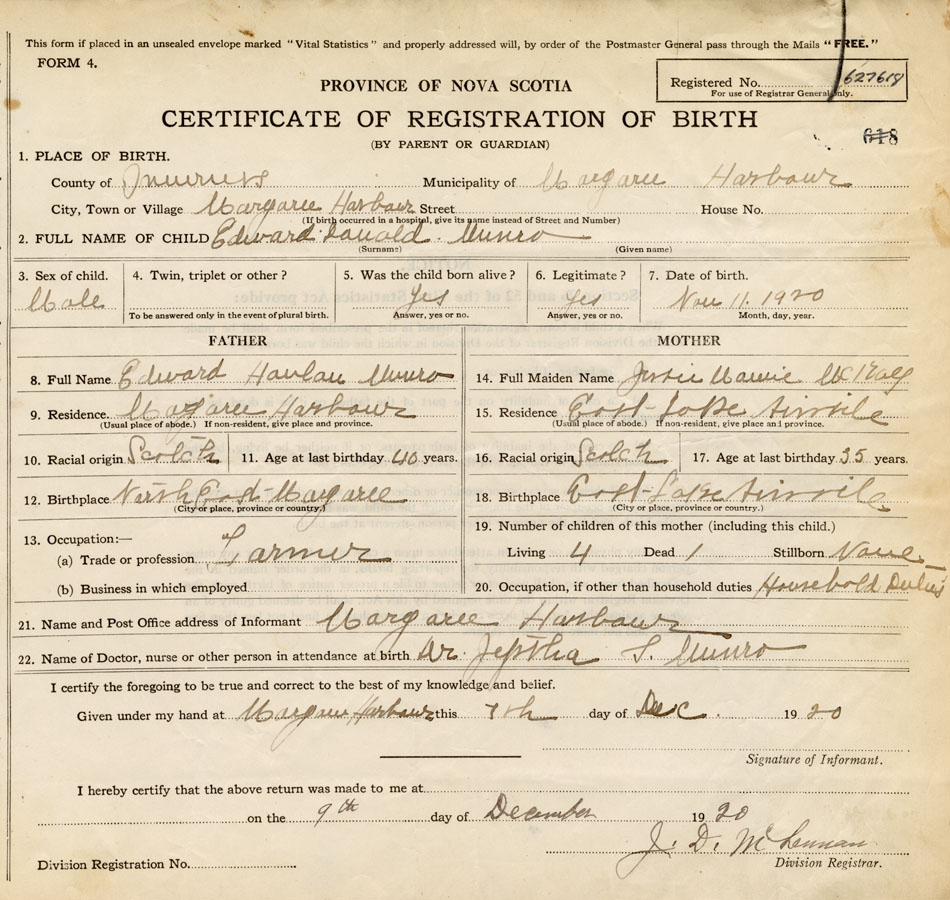 This form if placed in an unsealed envelope marked "Vital Statistics" and properly addressed will, by order of the Postmaster General pass through the Mails "FREE."
FORM 4.
Registered No. 627618
For use of Registrar General only.
PROVINCE OF NOVA SCOTIA
CERTIFICATE OF REGISTRATION OF BIRTH
618
(BY PARENT OR GUARDIAN)
1. PLACE OF BIRTH.
County of Inverness Municipality of Margaree Harbour
City, Town or Village Margaree Harbour Street House No.
(If birth occurred in a hospital, give its name instead of Street and Number)
2. FULL NAME OF CHILD Edward Donald Munro
(Surname) (Given name)
3. Sex of child. 4. Twin, triplet or other? 5. Was the child born alive? 6. Legitimate? 7. Date of birth.
Male Yes Yes Nov 11. 1920
To be answered only in the event of plural birth. Answer, yes or no. Answer, yes or no. Month, day, year.
FATHER MOTHER
8. Full Name Edward Hanlan Munro 14. Full Maiden Name Jessie Mamie
9. Residence. Margaree Harbour 15. Residence East Lake Ainslie
(Usual place of abode.) If non-resident, give place and province. (Usual place of abode.) If non-resident, give place and province.
10. Racial origin Scotch 11. Age at last birthday 40 years. 16. Racial origin Scotch 17. Age at last birthday 35 years.
12. Birthplace North East Margaree 18. Birthplace East Lake Ainslie
(City or place, province or country.) (City or place, province or country.)
13. Occupation:— 19. Number of children of this mother (including this child.)
(a) Trade or profession Farmer Living 4 Dead 1 Stillborn None
(b) Business in which employed 20. Occupation, if other than household duties Household Duties
21. Name and Post Office address of Informant Margaree Harbour
22. Name of Doctor, nurse or other person in attendance at birth Dr. Jeptha S. Munro
I certify the foregoing to be true and correct to the best of my knowledge and belief.
Given under my hand at Margaree Harbour this 7th day of Dec. 1920
Signature of Informant.
I hereby certify that the above return was made to me at
on the 9th day of December 1920
J. D. McLennan
Division Registration No. Division Registrar.